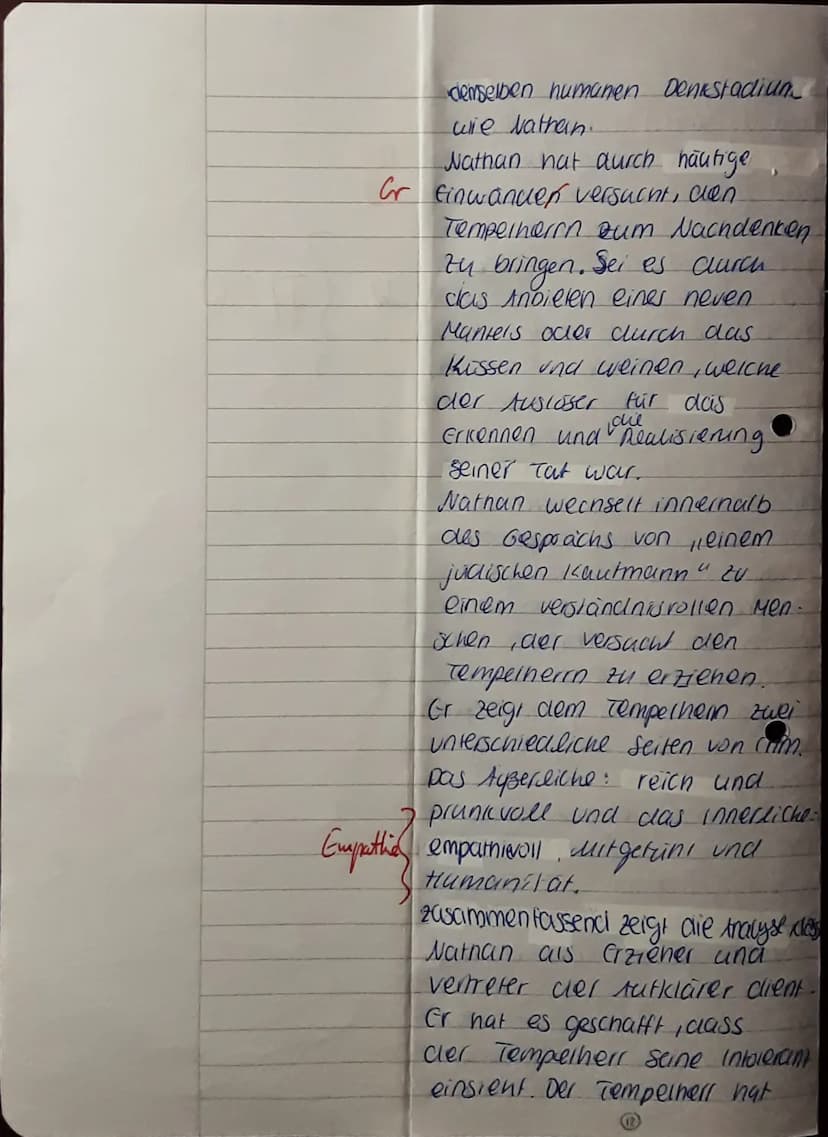 denselben humanen Denkstadium
wie Nathan.
Nathan hat durch häufige
Gr
Einwänder versucht, den
Tempelherrn zum Nachdenken
zu bringen. Sei es durch
das Anbieten eines neuen
Mantels oder durch das
Küssen und weinen, welche
der Auslöser für das
die
Erkennen und Realisierung
seiner Tat war.
Nathan wechselt innerhalb
des Gesprächs von „einem
jüdischen Kaufmann“ zu
einem verständnisvollen Men-
schen, der versucht den
Tempelherrn zu erziehen.
Er zeigt dem Tempelherrn zwei
unterschiedliche Seiten von ihm.
Das Äußerliche: reich und
prunkvoll und das innerliche:
Empathie
empathivoll, Mitgefühl und
Humanität.
Zusammenfassend zeigt die Analyse, dass
Nathan als Erzieher und
Vertreter der Aufklärer dient.
Er hat es geschafft, dass
der Tempelherr seine Intoleranz
einsieht. Der Tempelherr hat